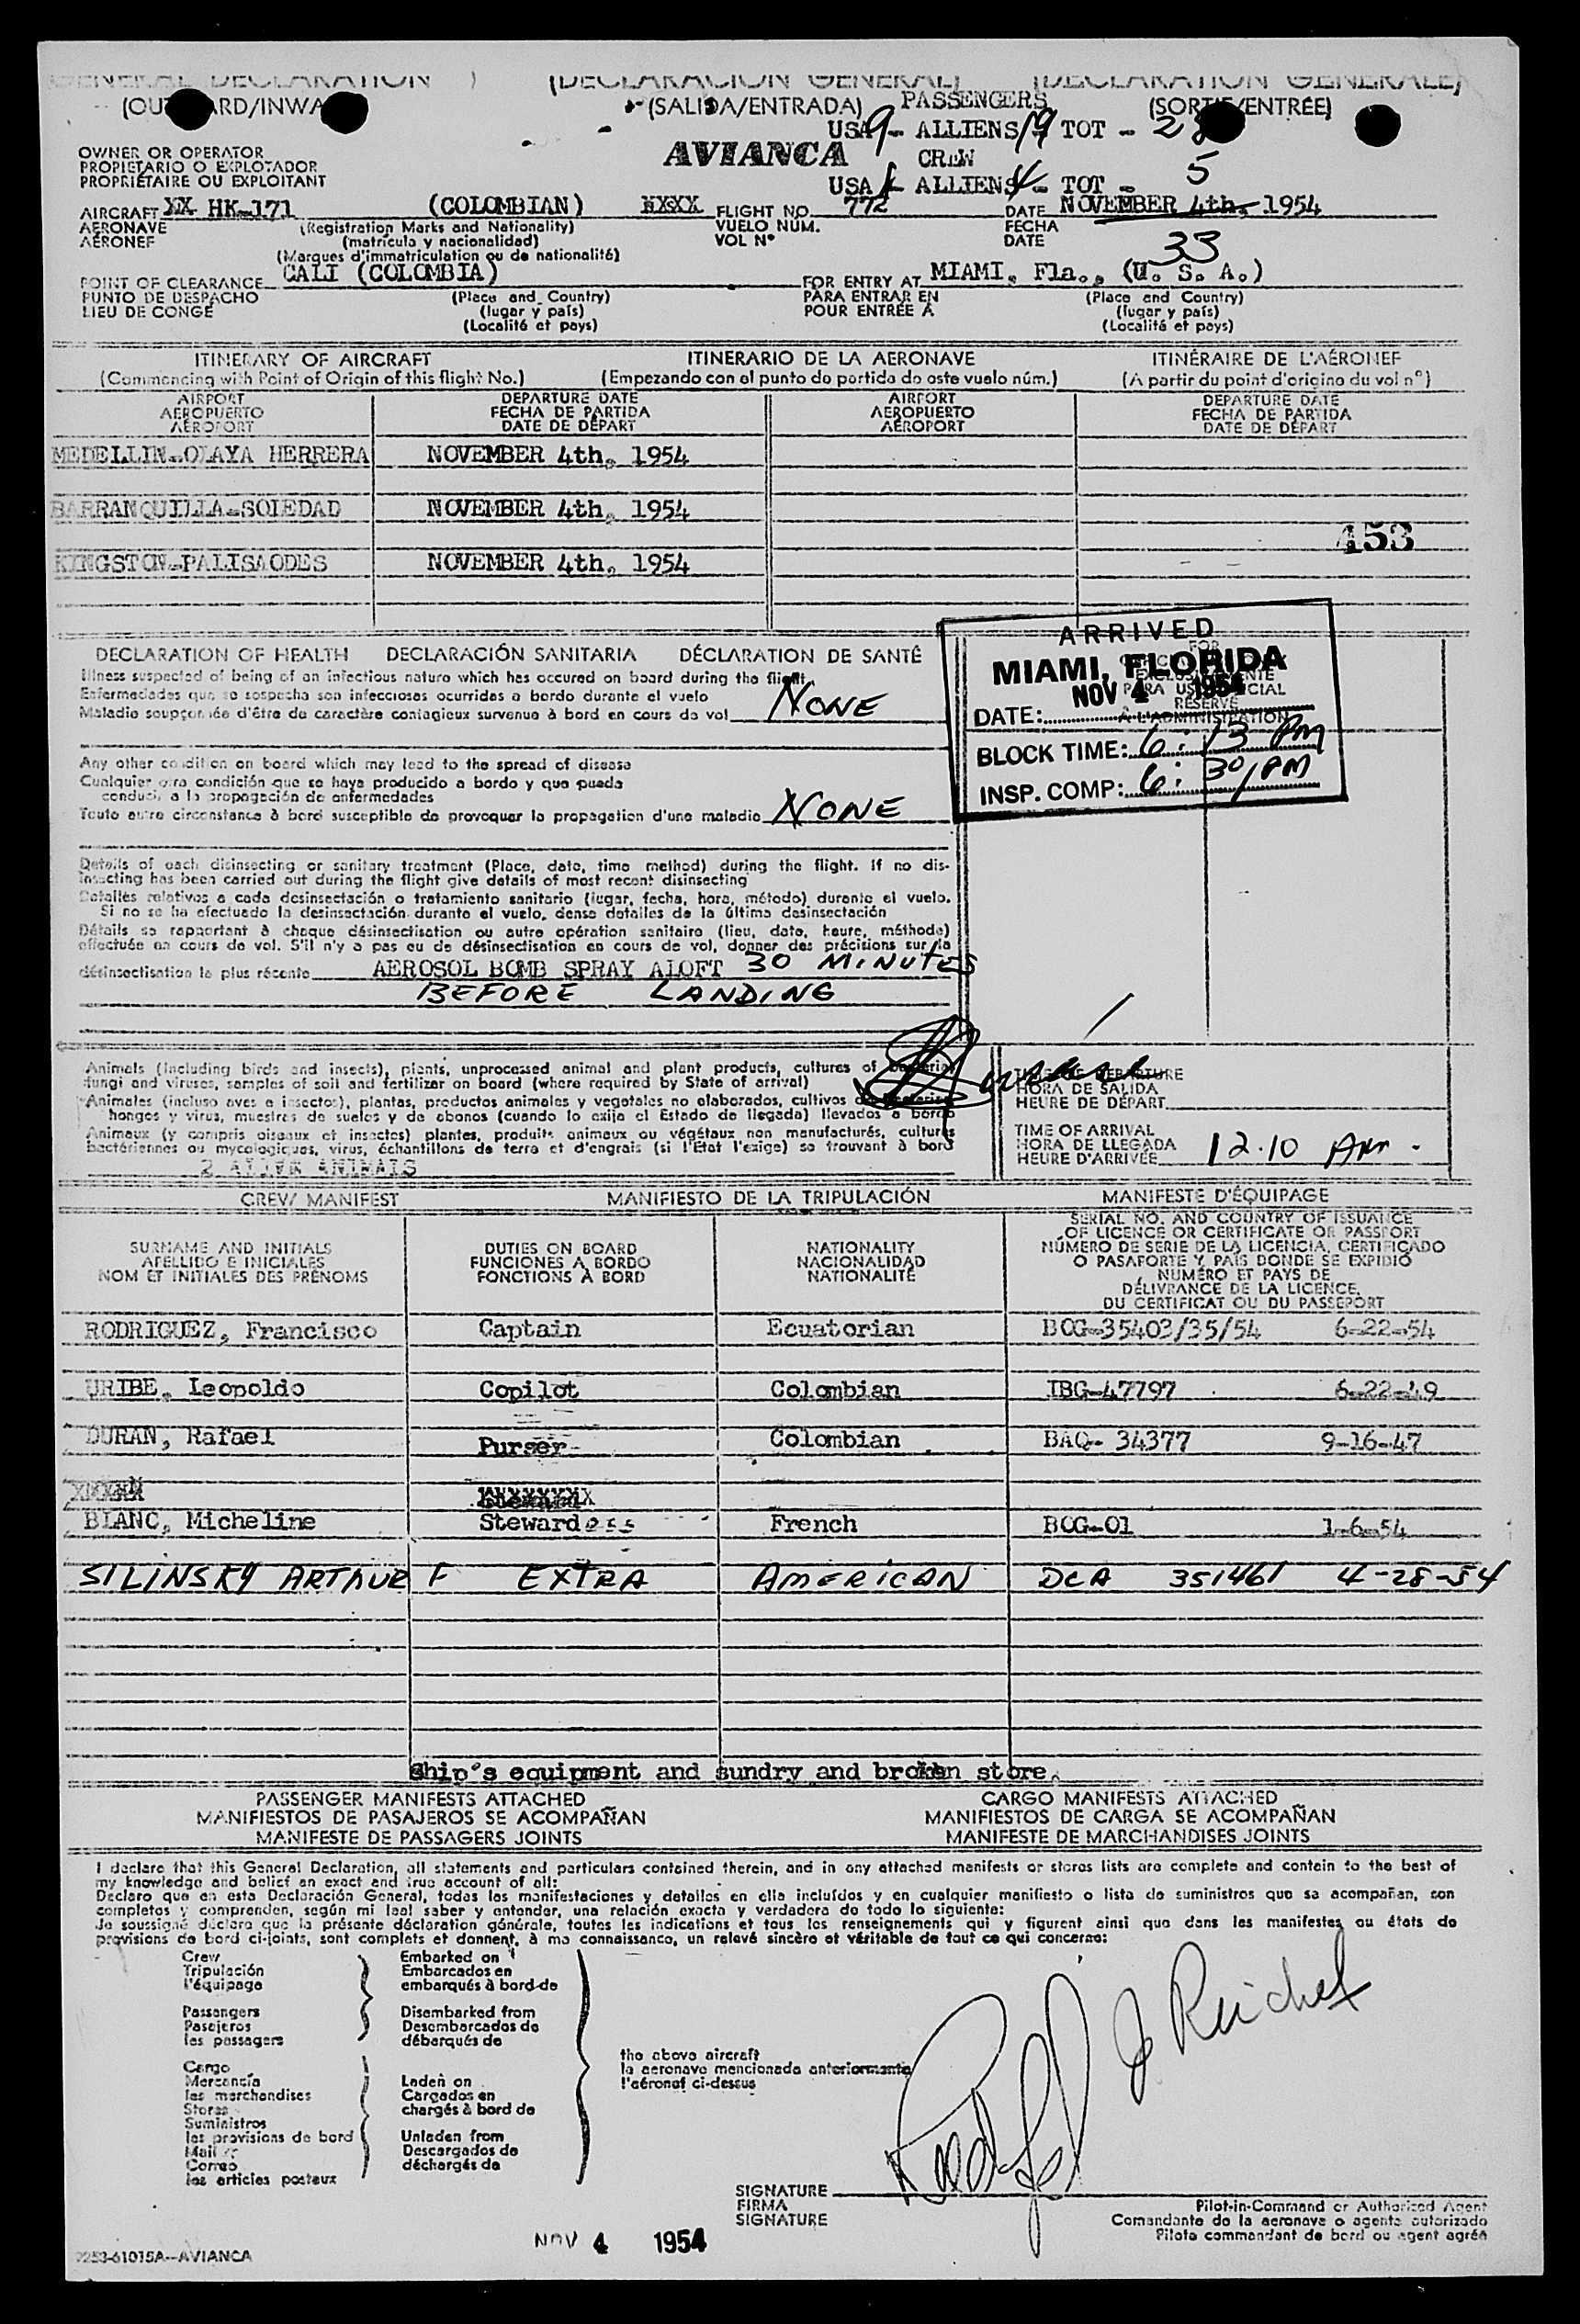 GENERAL DECLARATION (DECLARACIÓN GENERAL) (DÉCLARATION GÉNÉRALE)
(SALIDA/ENTRADA) PASSENGERS
USA 9 - ALLIENS 19 TOT -
AVIANCA CREW
USA ALLIENS 4 - TOT - 5
OWNER OR OPERATOR
PROPIETARIO O EXPLOTADOR
PROPRIÉTAIRE OU EXPLOITANT
AIRCRAFT XX HK-171 (COLOMBIAN) XXXX FLIGHT NO. 772 DATE NOVEMBER 4th. 1954
AERONAVE (Registration Marks and Nationality) VUELO NUM. FECHA
AÉRONEF (matrícula y nacionalidad) VOL N° DATE 33
(Marques d'immatriculation ou de nationalité)
POINT OF CLEARANCE CALI (COLOMBIA) FOR ENTRY AT MIAMI, Fla., (U. S. A.)
PUNTO DE DESPACHO (Place and Country) PARA ENTRAR EN (Place and Country)
LIEU DE CONGÉ (lugar y país) POUR ENTRÉE A (lugar y país)
(Localité et pays) (Localité et pays)
ITINERARY OF AIRCRAFT ITINERARIO DE LA AERONAVE ITINÉRAIRE DE L'AÉRONEF
(Commencing with Point of Origin of this flight No.) (Empezando con el punto de partida de este vuelo núm.) (A partir du point d'origine du vol n°)
AIRPORT DEPARTURE DATE AIRPORT DEPARTURE DATE
AEROPUERTO FECHA DE PARTIDA AEROPUERTO FECHA DE PARTIDA
AÉROPORT DATE DE DÉPART AÉROPORT DATE DE DÉPART
MEDELLIN-OLAYA HERRERA NOVEMBER 4th, 1954
BARRANQUILLA-SOLEDAD NOVEMBER 4th, 1954
453
KINGSTON-PALISAODES NOVEMBER 4th, 1954
ARRIVED
MIAMI, FLORIDA
DATE: NOV 4 1954
BLOCK TIME: 6:13 PM
INSP. COMP: 6:30 PM
DECLARATION OF HEALTH DECLARACIÓN SANITARIA DÉCLARATION DE SANTÉ
Illness suspected of being of an infectious nature which has occured on board during the flight
Enfermedades que se sospecha son infecciosas ocurridas a bordo durante el vuelo
Maladie soupçonnée d'être de caractère contagieux survenue à bord en cours de vol NONE
Any other condition on board which may lead to the spread of disease
Cualquier otra condición que se haya producido a bordo y que pueda
conducir a la propagación de enfermedades
Toute autre circonstance à bord susceptible de provoquer la propagation d'une maladie NONE
Details of each disinsecting or sanitary treatment (Place, date, time method) during the flight. If no dis-
insecting has been carried out during the flight give details of most recent disinsecting
Detalles relativos a cada desinsectación o tratamiento sanitario (lugar, fecha, hora, método) durante el vuelo.
Si no se ha efectuado la desinsectación durante el vuelo, dense detalles de la última desinsectación
Détails se rapportant à chaque désinsectisation ou autre opération sanitaire (lieu, date, heure, méthode)
effectuée en cours de vol. S'il n'y a pas eu de désinsectisation en cours de vol, donner des précisions sur la
désinsectisation la plus récente AEROSOL BOMB SPRAY ALOFT 30 MINUTES
BEFORE LANDING
Animals (including birds and insects), plants, unprocessed animal and plant products, cultures of bacteria,
fungi and viruses, samples of soil and fertilizer on board (where required by State of arrival)
Animales (incluso aves e insectos), plantas, productos animales y vegetales no elaborados, cultivos de bacterias,
hongos y virus, muestras de suelos y de abonos (cuando lo exija el Estado de llegada) llevados a bordo
Animaux (y compris oiseaux et insectes) plantes, produits animaux ou végétaux non manufacturés, cultures
bactériennes ou mycologiques, virus, échantillons de terre et d'engrais (si l'État l'exige) se trouvant à bord
2 ALIVE ANIMALS
TIME OF DEPARTURE
HORA DE SALIDA
HEURE DE DÉPART
TIME OF ARRIVAL
HORA DE LLEGADA
HEURE D'ARRIVÉE 12.10
CREW MANIFEST MANIFIESTO DE LA TRIPULACIÓN MANIFESTE D'ÉQUIPAGE
SURNAME AND INITIALS DUTIES ON BOARD NATIONALITY SERIAL NO. AND COUNTRY OF ISSUANCE
OF LICENCE OR CERTIFICATE OR PASSPORT
APELLIDO E INICIALES FUNCIONES A BORDO NACIONALIDAD NÚMERO DE SERIE DE LA LICENCIA, CERTIFICADO
O PASAPORTE Y PAÍS DONDE SE EXPIDIÓ
NOM ET INITIALES DES PRÉNOMS FONCTIONS À BORD NATIONALITÉ NUMÉRO ET PAYS DE
DÉLIVRANCE DE LA LICENCE,
DU CERTIFICAT OU DU PASSEPORT
RODRIGUEZ, Francisco Captain Ecuatorian BOG-35403/35/54 6-22-54
URIBE, Leopoldo Copilot Colombian IBG-47797 6-22-49
DURAN, Rafael Purser Colombian BAQ- 34377 9-16-47
BLANC, Micheline Stewardess French BOG-01 1-6-54
SILINSKY ARTHUR F EXTRA AMERICAN DCA 351461 4-28-54
Ship's equipment and sundry and broken store.
PASSENGER MANIFESTS ATTACHED CARGO MANIFESTS ATTACHED
MANIFIESTOS DE PASAJEROS SE ACOMPAÑAN MANIFIESTOS DE CARGA SE ACOMPAÑAN
MANIFESTE DE PASSAGERS JOINTS MANIFESTE DE MARCHANDISES JOINTS
I declare that this General Declaration, all statements and particulars contained therein, and in any attached manifests or stores lists are complete and contain to the best of
my knowledge and belief an exact and true account of all:
Declaro que en esta Declaración General, todas las manifestaciones y detalles en ella incluídos y en cualquier manifiesto o lista de suministros que se acompañan, son
completos y comprenden, según mi leal saber y entender, una relación exacta y verdadera de todo lo siguiente:
Je soussigné déclare que la présente déclaration générale, toutes les indications et tous les renseignements qui y figurent ainsi que dans les manifestes ou états de
provisions de bord ci-joints, sont complets et donnent, à ma connaissance, un relevé sincère et véritable de tout ce qui concerne:
Crew Embarked on
Tripulación Embarcados en
l'équipage embarqués à bord de
Passengers Disembarked from
Pasajeros Desembarcados de
les passagers débarqués de
the above aircraft
la aeronave mencionada anteriormente
l'aéronef ci-dessus
Cargo
Mercancía Laden on
les marchandises Cargados en
Stores chargés à bord de
Suministros
les provisions de bord Unladen from
Mail Descargados de
Correo déchargés de
les articles postaux
J Reichel
SIGNATURE
FIRMA
SIGNATURE
Pilot-in-Command or Authorized Agent
Comandante de la aeronave o agente autorizado
Pilote commandant de bord ou agent agréé
NOV 4 1954
2253-61015A--AVIANCA